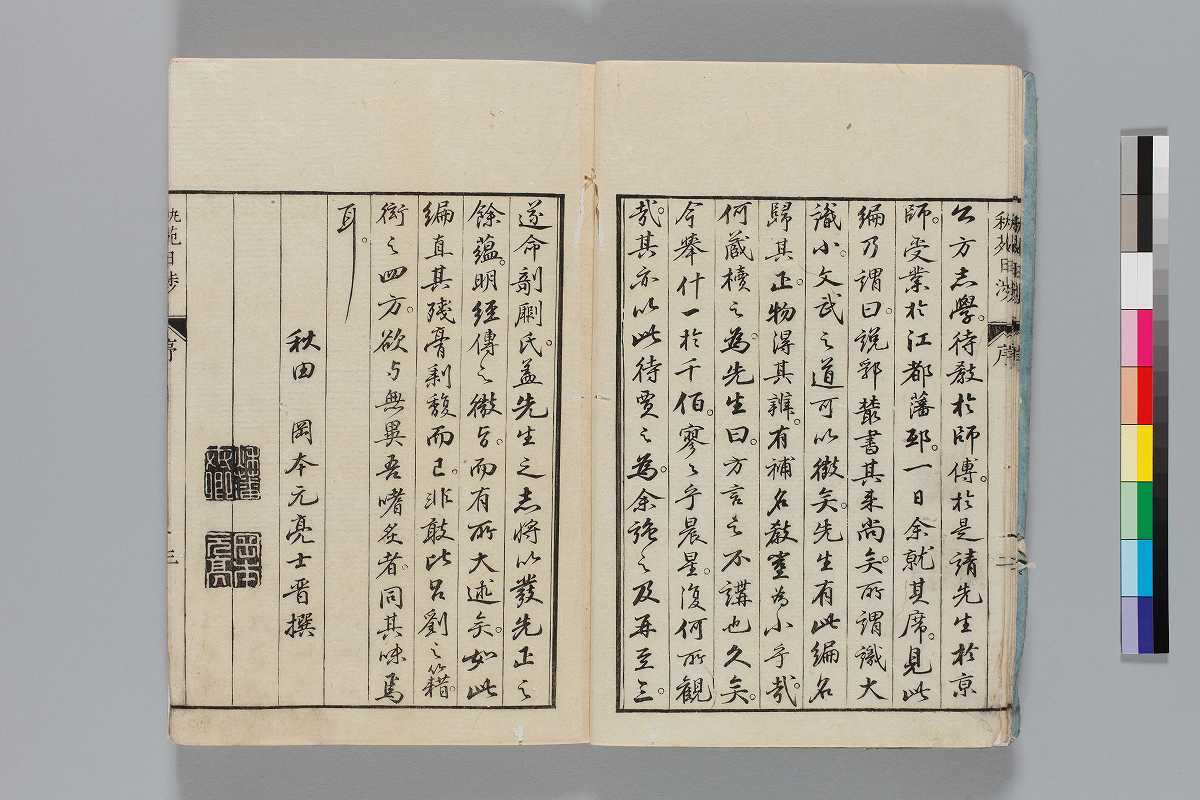 公方志學。待教於師傅。於是請先生於京
師。受業於江都藩邸。一日余就其席。見此
編乃謂曰。說郛叢書其来尚矣。所謂識大
識小。文武之道可以徵矣。先生有此編名
歸其正。物得其辨。有補名教豈為小乎哉。
何蔵櫝之為。先生曰。方言之不講也久矣。
今舉什一於千佰。寥々乎晨星。復何所觀
哉。其亦以此待賈之為。余強之及再至三。
秇苑日渉
序
二
遂命剞劂氏。蓋先生之志將以發先正之
餘蘊。明經傳之徵旨。而有所大述矣。如此
編直其殘膏剩馥而已。非敢比呂劉之籍。
衒之四方。欲与無異吾嗜炙者。同其味焉
耳。
秋田 岡本元亮士晋撰
岡本元亮
秇苑日渉
序
三